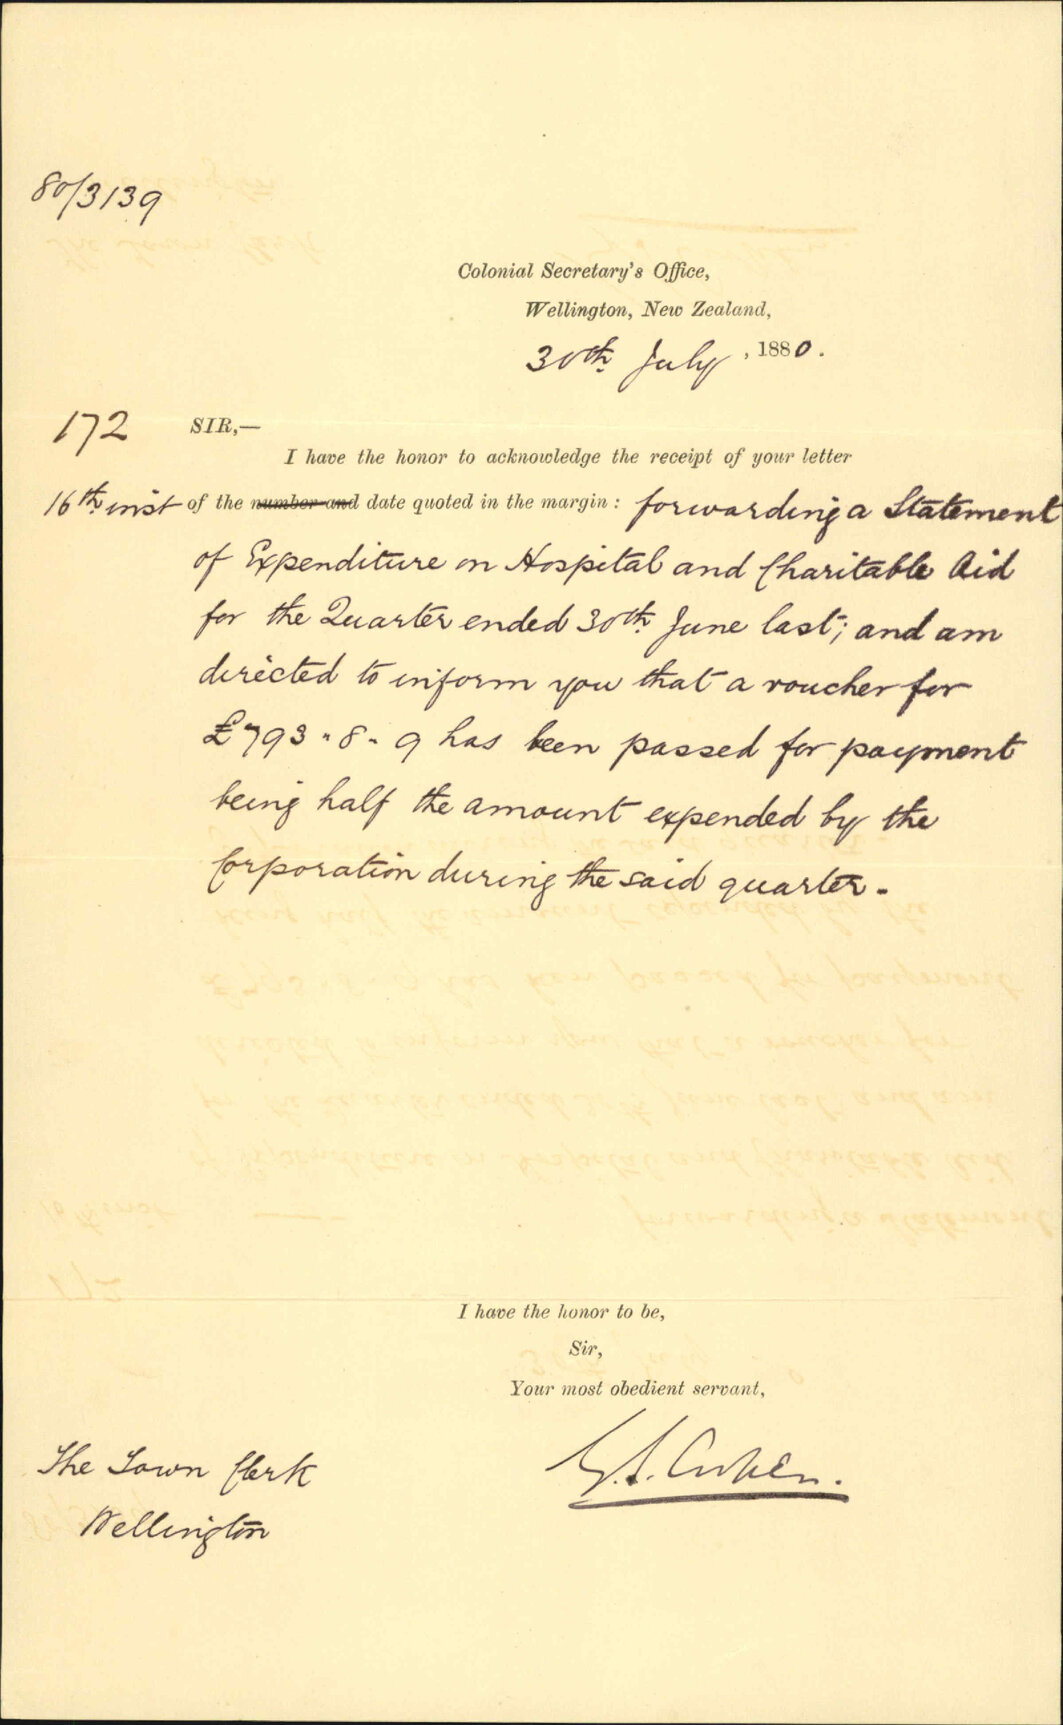 80/3139
Colonial Secretary's Office,
Wellington, New Zealand,
30th July, 1880.
172 SIR,—
I have the honor to acknowledge the receipt of your letter
16th inst of the number and date quoted in the margin: forwarding a Statement
of Expenditure on Hospital and Charitable Aid
for the Quarter ended 30th June last; and am
directed to inform you that a voucher for
£793-8-9 has been passed for payment
being half the amount expended by the
Corporation during the said quarter.
I have the honor to be,
Sir,
Your most obedient servant,
G. S. Cooper.
The Town Clerk
Wellington